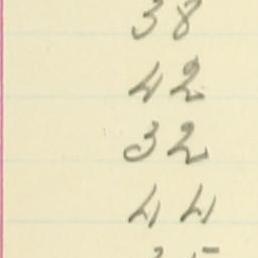 38
42
32
44
35